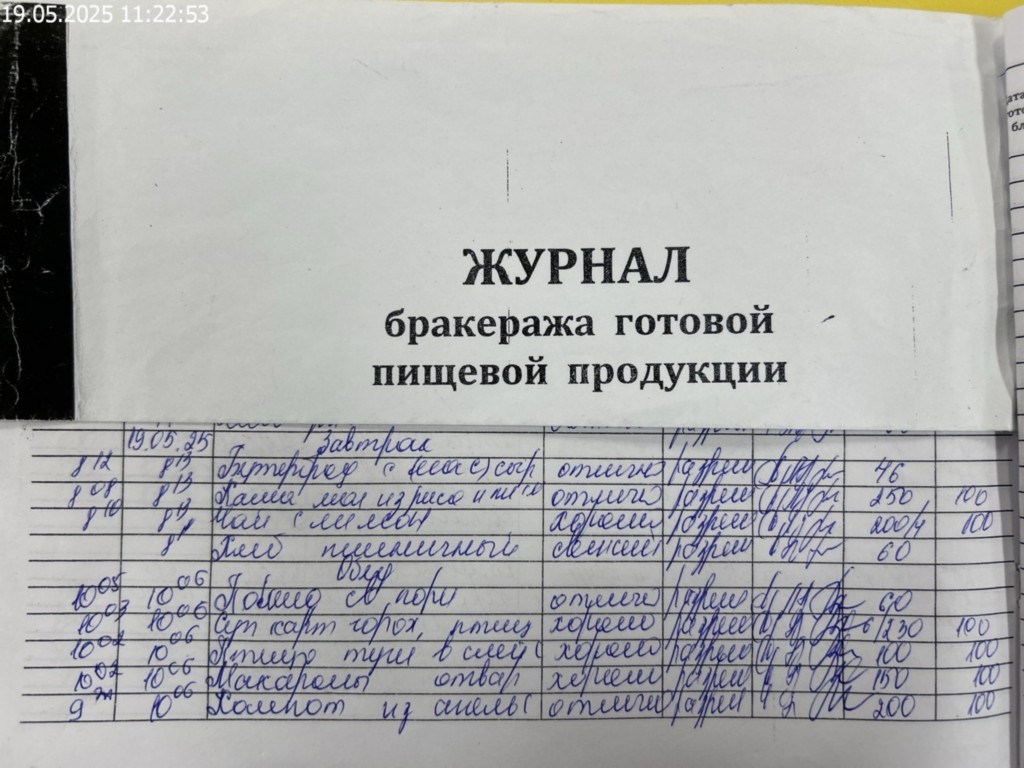 19.05.2025 11:22:53
ЖУРНАЛ
бракеража готовой
пищевой продукции
19.05.25 Завтрак
8 12 8 13 Бутерброд с (масл с) сыр отлично разреш 46
8 08 8 13 Каша мол из риса и отлично разреш 250 100
8 10 8 13 Чай с лимон хорошо разреш 200/4 100
Хлеб пшеничный свежий разреш 60
Обед
10 05 10 06 отлично разреш 60
10 03 10 06 Суп карт горох, птиц хорошо разреш 6/230 100
10 02 10 06 Птица туш в смет с хорошо разреш 100 100
10 02 10 06 Макароны отвар хорошо разреш 150 100
9 10 06 Компот из апельс отлично разреш 200 100